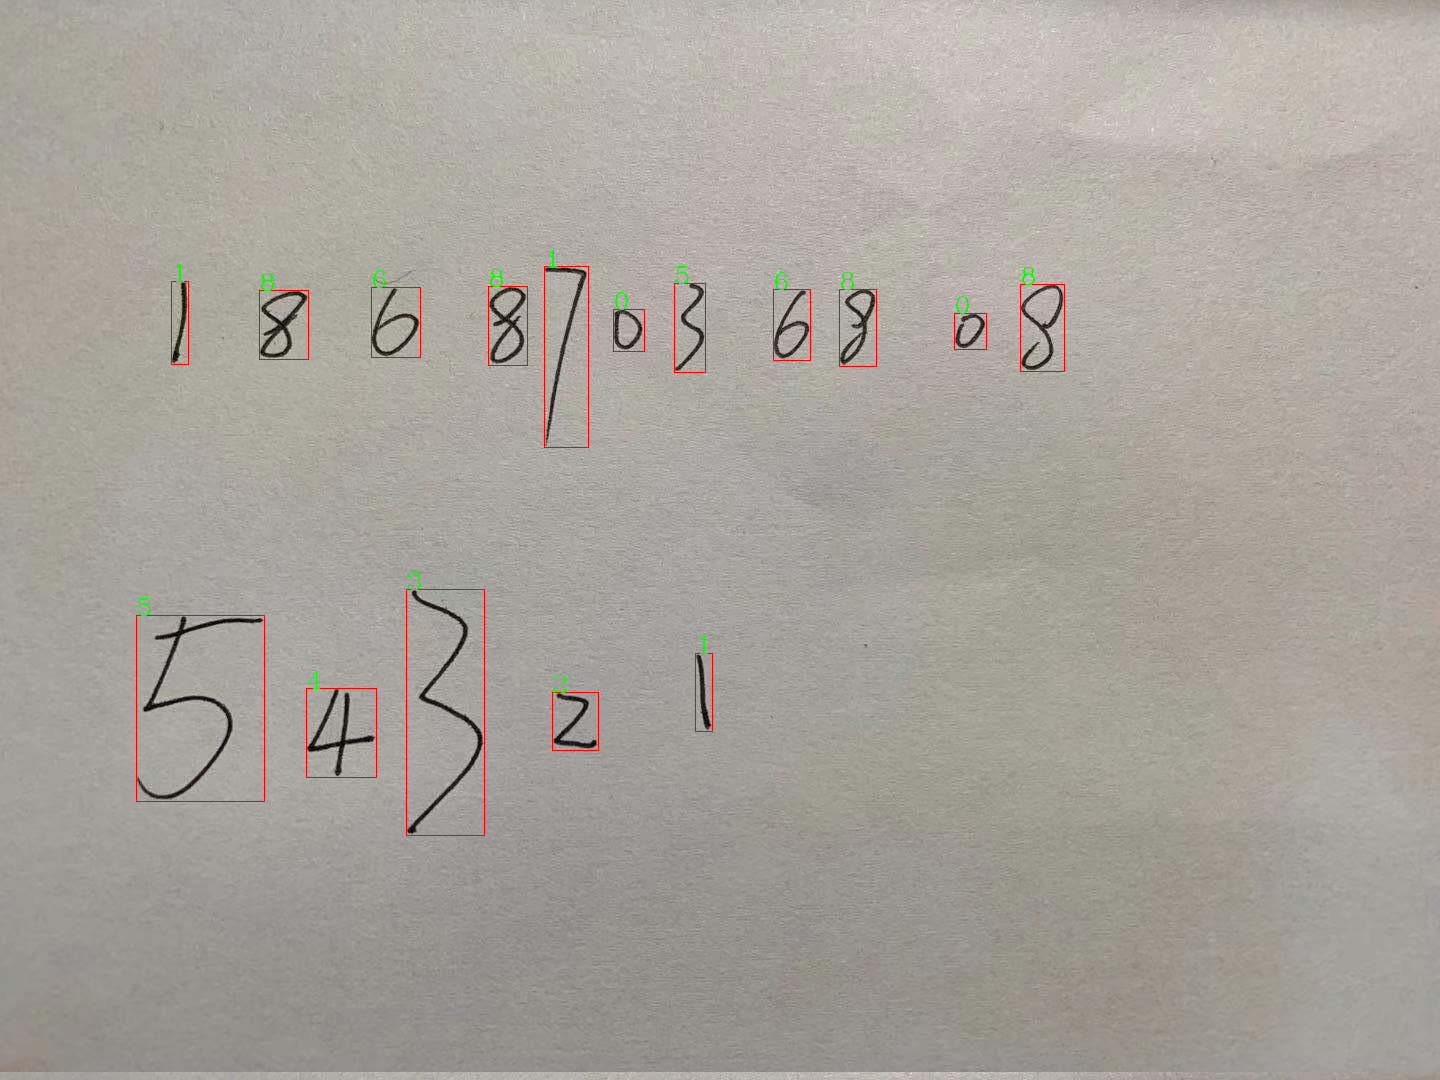 1 8 6 8 1 0 5 6 8 0 8
1 8 6 8 7 0 3 6 8 0 8
5 4 3 2 1
5 4 3 2 1